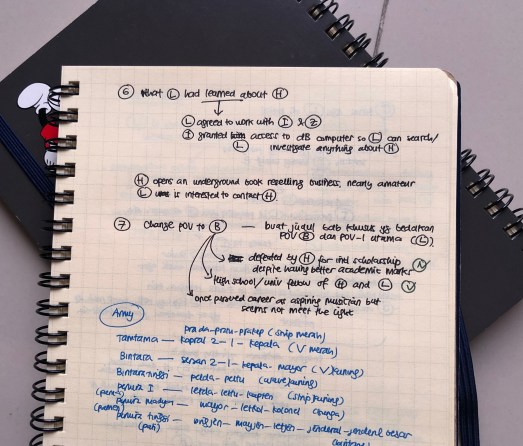 6 What L had learned about H
L agreed to work with I & Z
I granted access to db computer so L can search/
L investigate anything about H
H opens an underground book reselling business, nearly amateur
L is interested to contact H.
7 Change POV to B — buat judul bab khusus yg bedakan
POV B dan POV-1 utama (L).
defeated by H for intl scholarship
despite having better academic marks
High school/univ fellow of H and L
once pursued career as aspiring musician but
seems not meet the light
Army
prada-pratu-praka (strip merah)
Tamtama — kopral 2-1-kepala (V merah)
Bintara — sersan 2-1-kepala-mayor (V kuning)
Bintara tinggi — pelda-peltu
perwira I — letda-lettu-kapten (strip kuning)
perwira madya — mayor-letkol-kolonel (bunga)
perwira tinggi — brigjen-mayjen-letjen-jenderal-jenderal besar
(pati)